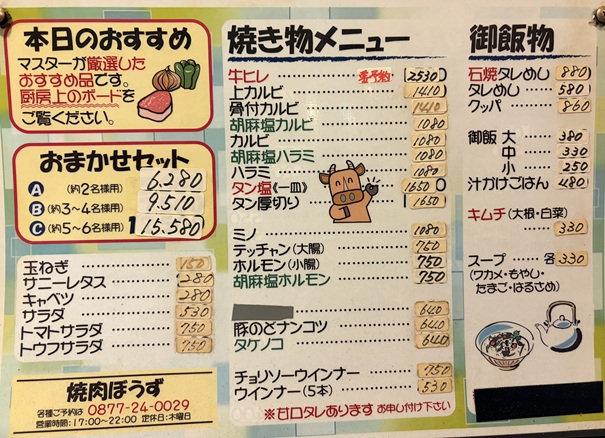 本日のおすすめ
マスターが厳選した
おすすめ品です。
厨房上のボードを
ご覧ください。
おまかせセット
A (約2名様用) 6.280
B (約3~4名様用) 9.510
C (約5~6名様用) 15.580
玉ねぎ 150
サニーレタス 280
キャベツ 280
サラダ 530
トマトサラダ 750
トウフサラダ 750
焼肉ぼうず
各種ご予約は 0877-24-0029
営業時間:17:00~22:00 定休日:木曜日
焼き物メニュー
牛ヒレ 要予約 2530
上カルビ 1410
骨付カルビ 1410
胡麻塩カルビ 1080
カルビ 1080
胡麻塩ハラミ 1080
ハラミ 1080
タン塩《一皿》 1650
タン厚切り 1650
ミノ 1080
テッチャン(大腸) 750
ホルモン(小腸) 750
胡麻塩ホルモン 750
640
豚のどナンコツ 640
タケノコ 640
チョリソーウインナー 750
ウインナー(5本) 530
※甘口タレあります お申し付け下さい
御飯物
石焼タレめし 880
タレめし 580
クッパ 860
御飯 大 380
中 330
小 250
汁かけごはん 480
キムチ (大根・白菜)
330
スープ 各330
(ワカメ・もやし・
たまご・はるさめ)